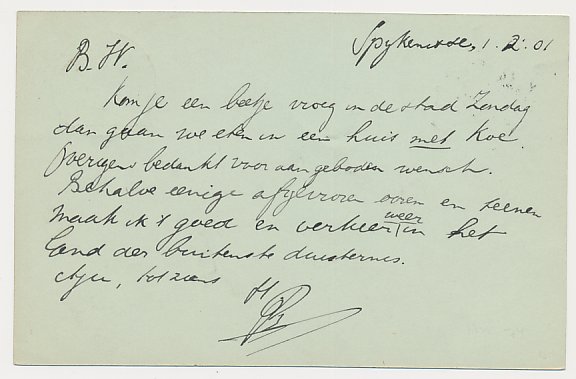 Spykenisse, 1.2.01
B.W.
Kom je een beetje vroeg in de stad Zondag
dan gaan we eten in een huis met Koe.
Overigens bedankt voor aangeboden wensch.
Behalve eenige afgevroren ooren en teenen
maak ik 't goed en verkeer weer in het
land der buitenste duisternis.
Atju, tot ziens
H